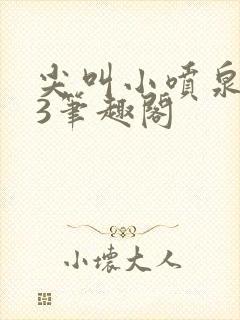 尖叫小喷泉
3笔趣阁
小壞大人